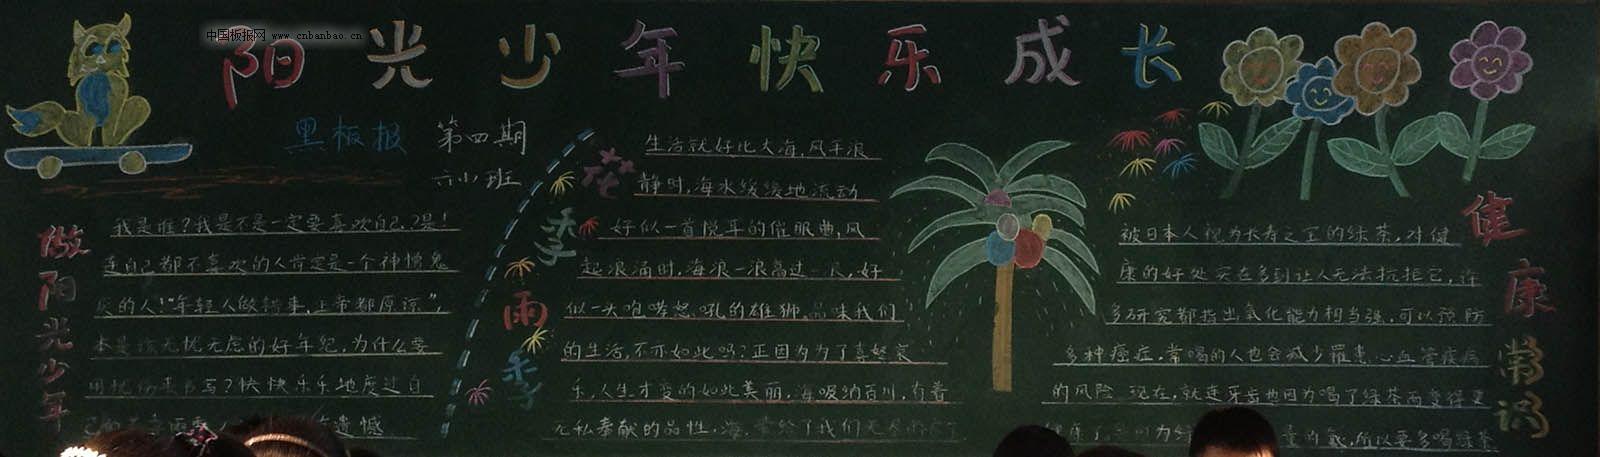 中国板报网 www.cnbanbao.cn
阳光少年快乐成长
黑板报 第四期
六小班
做阳光少年
我是谁?我是不是一定要喜欢自己?是!
连自己都不喜欢的人肯定是一个神憎鬼
厌的人!"年轻人做错事,上帝都原谅",
本是该无忧无虑的好年纪,为什么要
用忧伤来书写?快快乐乐地度过自
遗憾
季雨季
生活就好比大海,风平浪
静时,海水缓缓地流动
好似一首悦耳的催眠曲,风
起浪涌时,海浪一浪高过一浪,好
似一头咆哮怒吼的雄狮。品味我们
的生活,不亦如此吗?正因为为了喜怒哀
乐,人生才变的如此美丽,海吸纳百川,有着
无私奉献的品性,海,赏给了我们无尽的
健康常识
被日本人视为长寿之宝的绿茶,对健
康的好处实在多到让人无法抗拒它,许
多研究都指出氧化能力相当强,可以预防
多种癌症,常喝的人也会减少罹患心血管疾病
的风险 现在,就连牙齿也因为喝了绿茶而变得更
健康了 因为绿 量的氟,所以要多喝绿茶